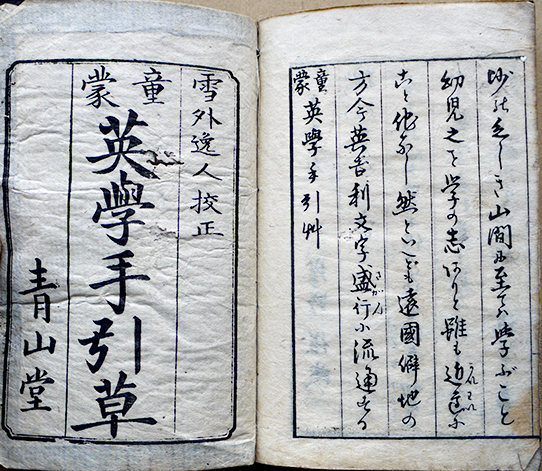 雪外逸人校正
童蒙
英學手引草
青山堂
童蒙英學手引艸
方今英吉利文字盛行小流通する
こと他なし然といへども遠國僻地の
幼児之を學の志ありと雖も
山間に至ては學ぶこと